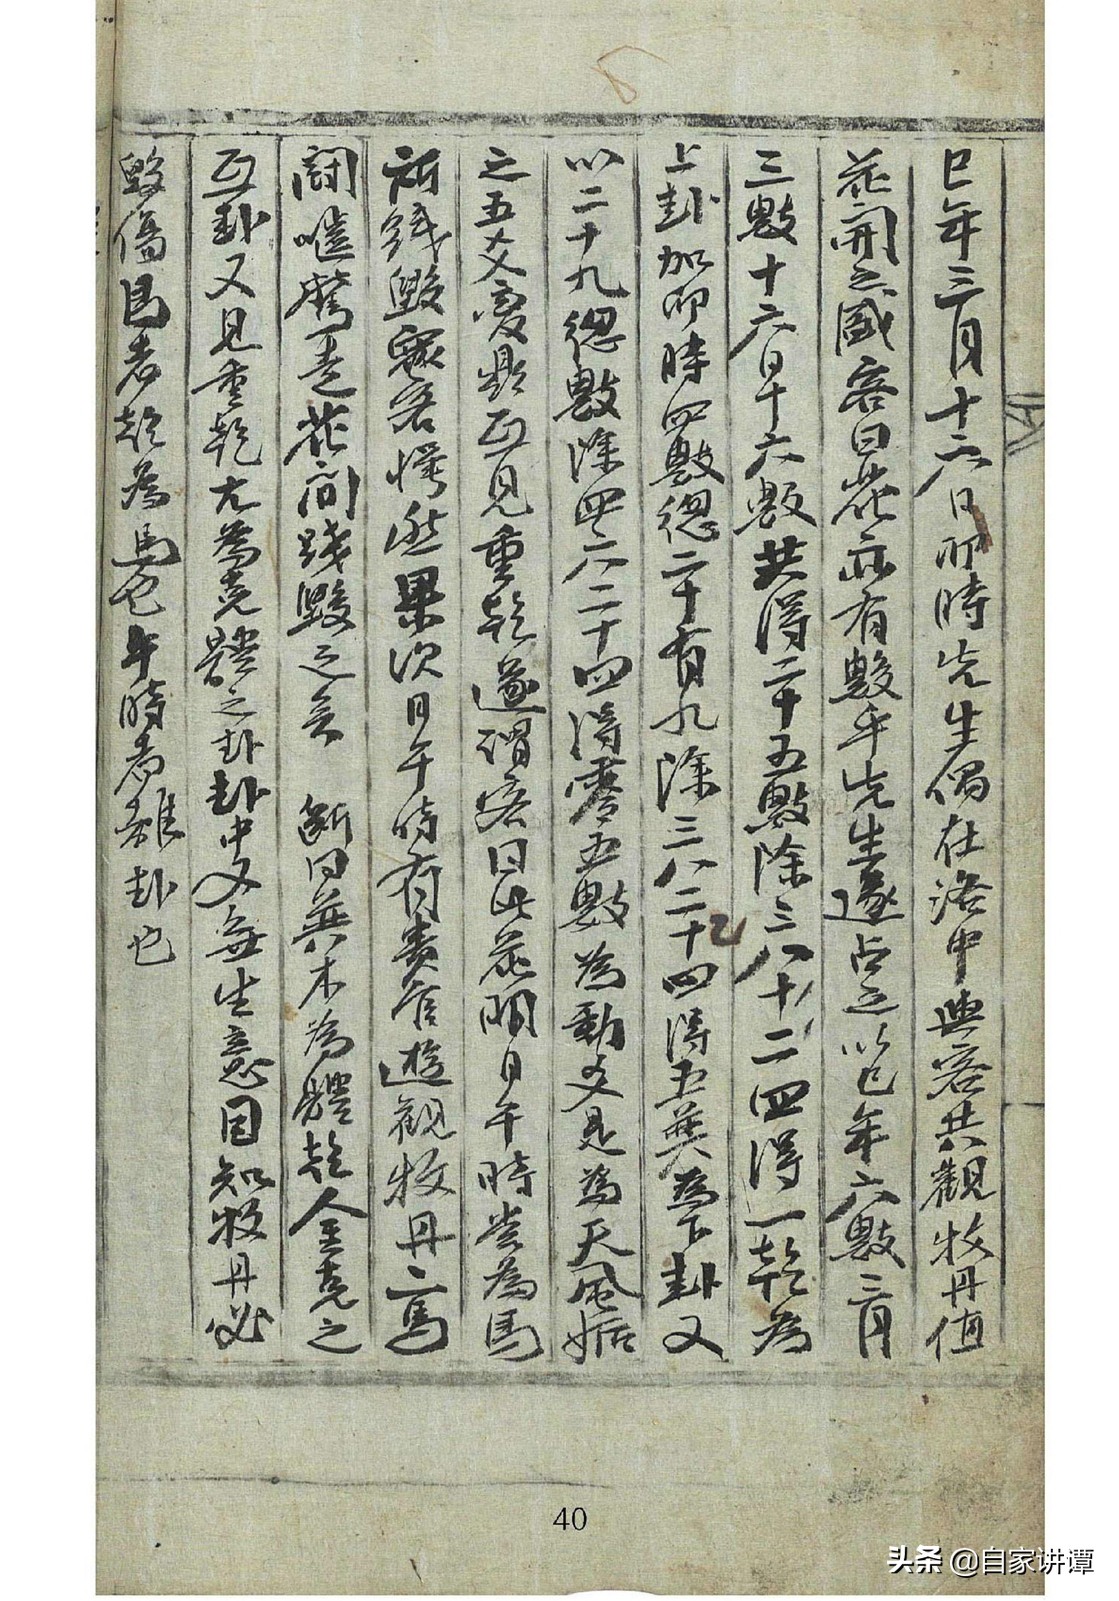 巳年三月十六日卯時先生偶在洛中與客共觀牧丹值
花開之盛客曰花亦有數乎先生遂占之以巳年六數三月
三數十六日十六數共得二十五數除三八十二四得一乾為
上卦加卯時四數總二十有九除三八二十四得五巽為下卦又
以二十九總數除四六二十四得零五數為動爻是為天風姤
之五爻變鼎互見重乾遂謂客曰此花明日午時當為馬
所踐毀眾客愕然果次日午時有貴官遊觀牧丹二馬
鬪嗌驚走花間踐毀之矣 斷曰巽木為體乾金克之
互卦又見重乾尤為克體之卦卦中又無生意固知牧丹必
毀傷馬者乾為馬也午時者離卦也
40
头条 @自家讲谭